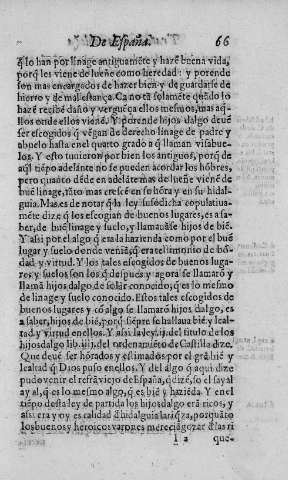 De España. 66
q̃ lo han por linage antiguamẽte y hazẽ buena vida,
porq̃ les viene de lueñe como heredad: y porende
son mas encargados de hazer bien y de guardarse de
hierro y de mal estança. Ca no tã solamẽte quãdo lo
hazẽ recibe daño y verguẽça ellos mesmos, mas aq̃
llos onde ellos vienẽ. Y porende hijos dalgo deuẽ
ser escogidos q̃ vẽgan de derecho linage de padre y
abuelo hasta enel quarto grado a q̃ llaman visabue-
los. Y esto tuuieron por bien los antiguos, porq̃ de
aq̃l tiẽpo adelante no se pueden acordar los hõbres,
pero quãto dẽde en adelãte mas de lueñe vienẽ de
buẽ linage, tãto mas crescẽ en su hõra y en su hidal-
guia. Mas es de notar q̃ la ley susodicha copulatiua-
mẽte dize q̃ los escogian de buenos lugares, es a sa-
ber, de buẽ linage y suelo, y llamauãse hijos de biẽ.
Y assi por el algo q̃ era la hazienda como por el buẽ
lugar y suelo donde veniã, q̃ era testimonio de bõ-
dad y virtud. Y los tales escogidos de buenos luga-
res, y suelos son los q̃ despues y agora se llamarõ y
llamã hijos dalgo, de solar conocido, q̃ es lo mesmo
de linage y suelo conocido. Estos tales escogidos de
buenos lugares y cõ algo se llamarõ hijos dalgo, es
a saber, hijos de biẽ, porq̃ siẽpre se hallaua biẽ, y leal-
tad y virtud enellos. Y assi la ley .ij. del titulo de los
hijosdalgo lib. iiij. del ordenamiẽto de Castilla dize.
Que deuẽ ser hõrados y estimados por el grã biẽ y
lealtad q̃ Dios puso enellos. Y del algo q̃ aqui dize
pudo venir el refrã viejo de España, q̃ dizẽ, so el sayal
ay al, q̃ es lo mesmo algo, q̃ es biẽ y haziẽda. Y en el
tiẽpo desta ley de partida los hijosdalgo erã ricos, y
assi era y oy es calidad d̃ hidalguia la riq̃za, porquãto
los buenos y heroicos varones mereciã gozar d̃ las ri
I 2 que-